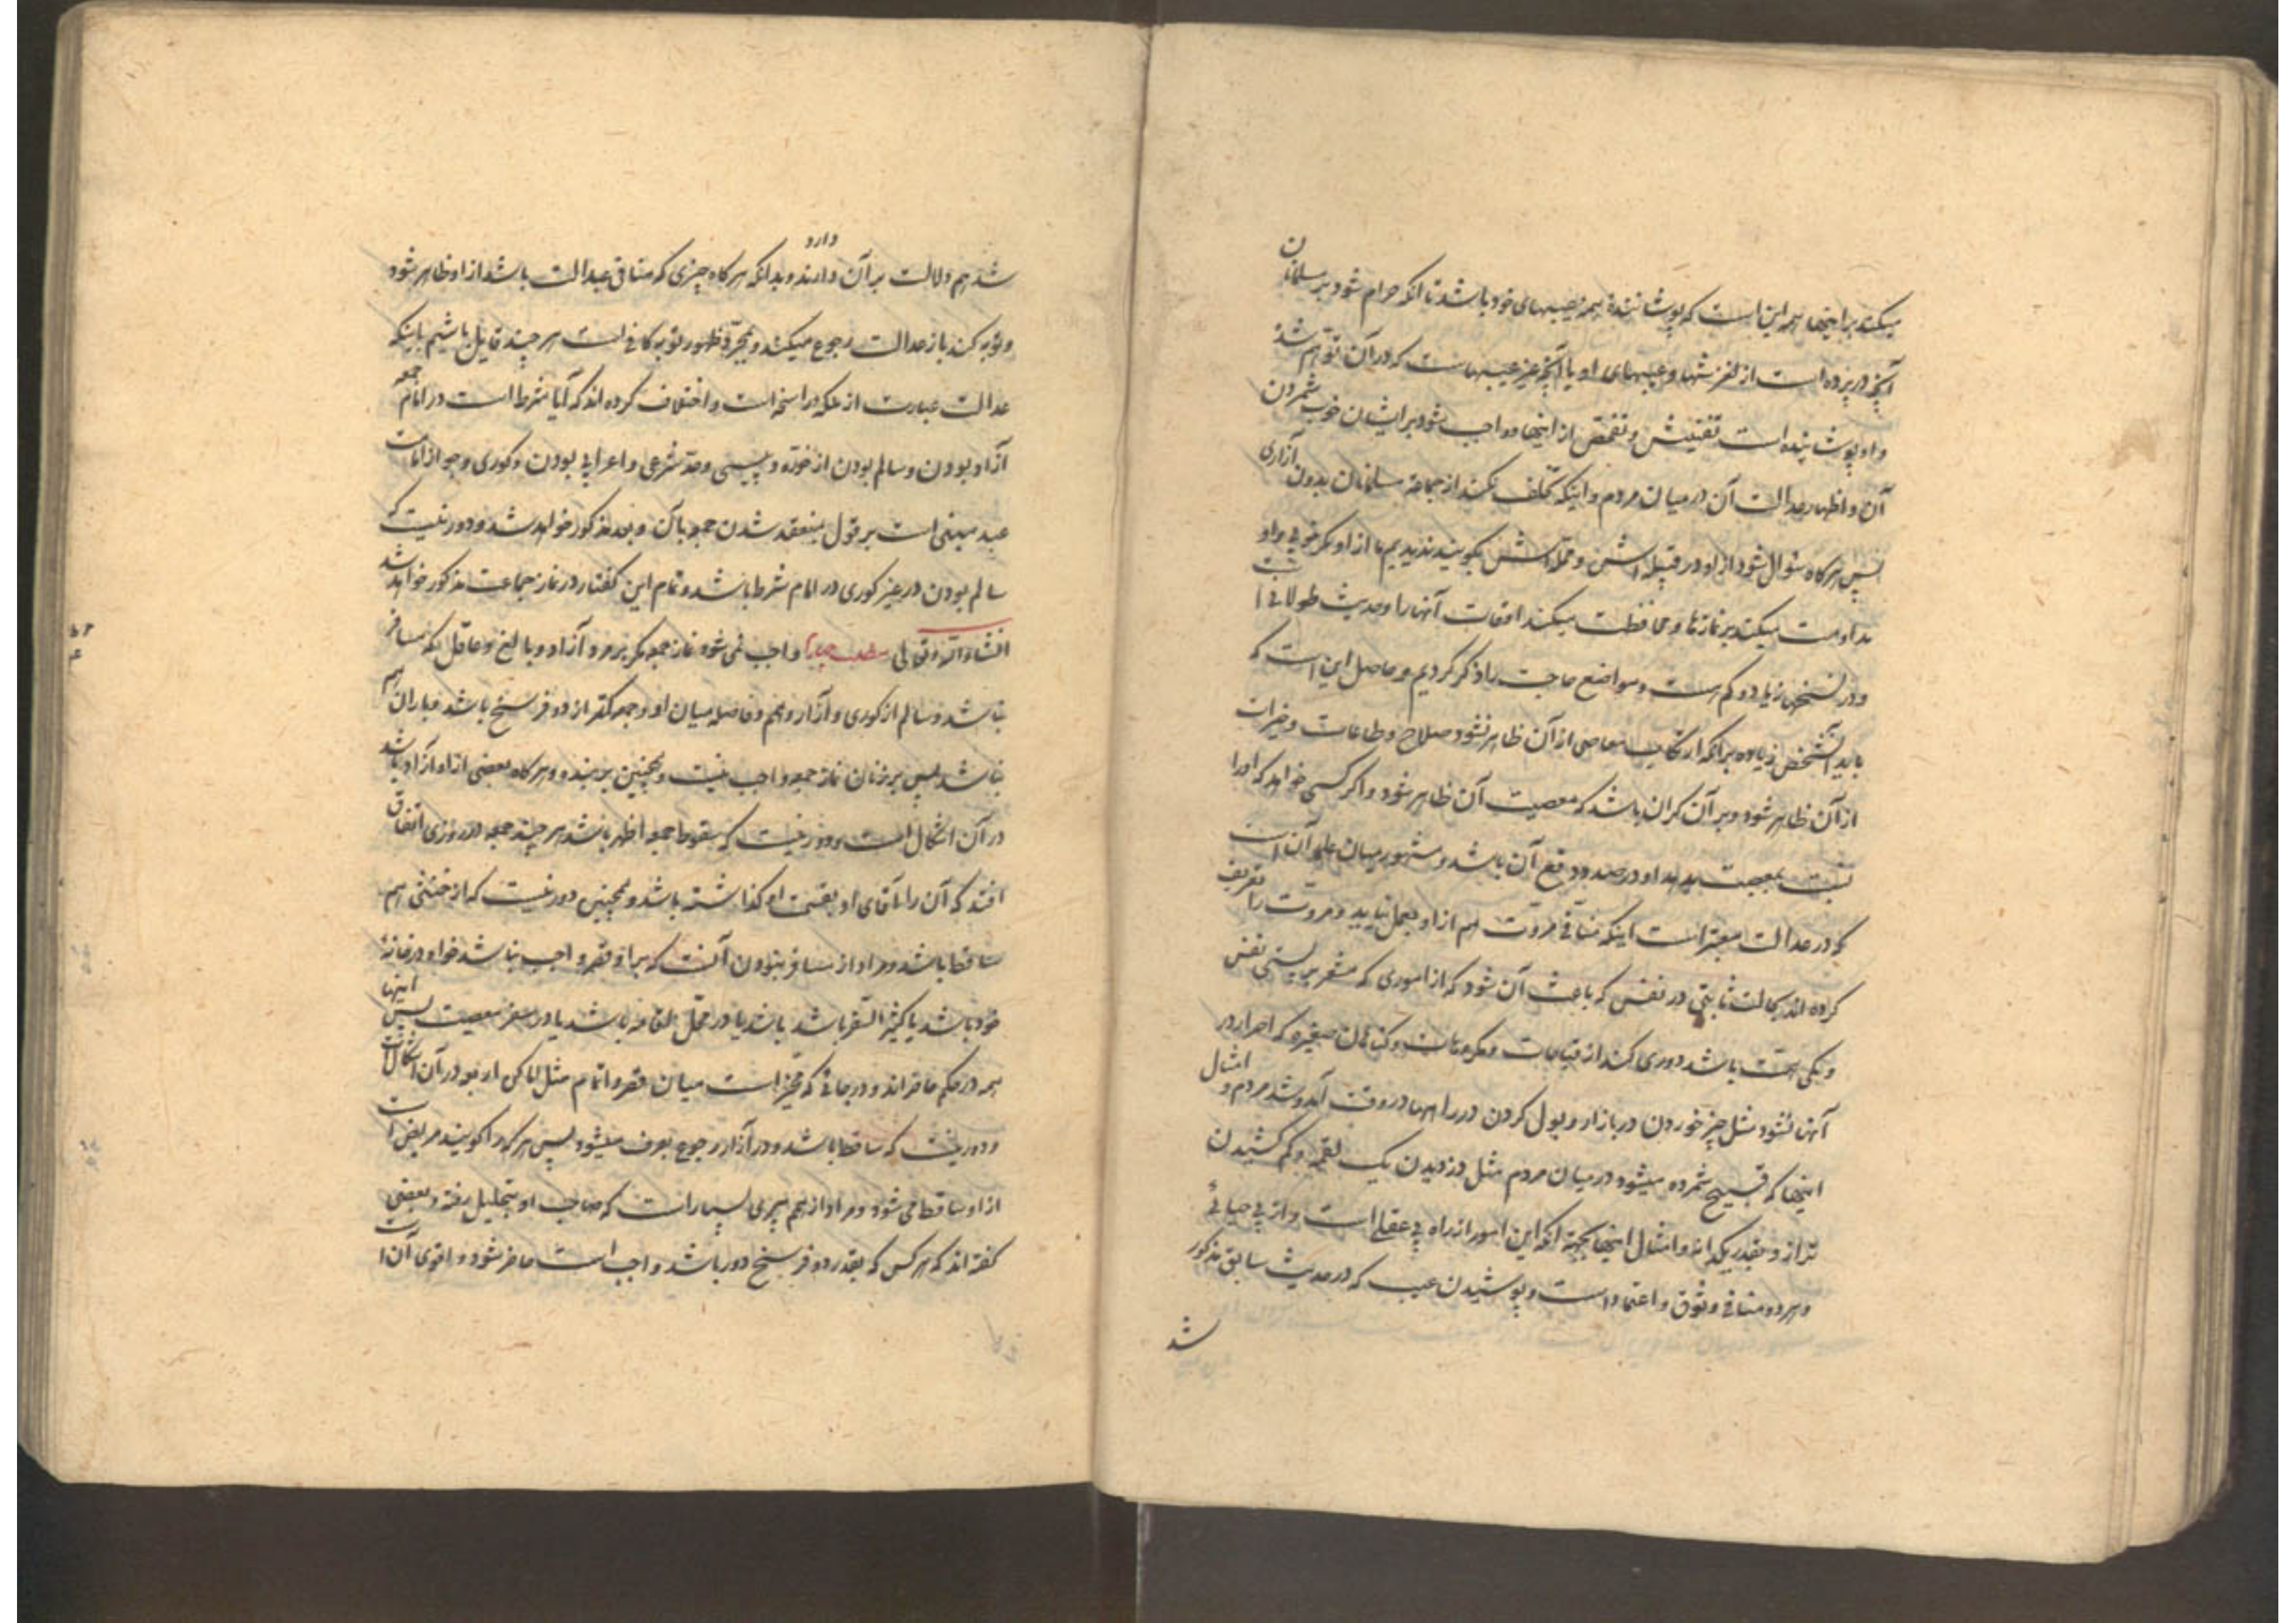 میکند بر اینها همه این است که پوشانندهٔ همه عیبهای خود باشد تا انکه حرام شود بر مسلمانان
آنچه در پرده است از لغزشها و عیبهای او یا آنچه غیر عیبهاست که در آن توهم شد
و او پوشانیده است تفتیش و تفحص از اینها و واجب شود بر ایشان خوب شمردن
آن و اظهار عدالت آن در میان مردم و اینکه تخلف نکند از جماعة مسلمانان بدون آزاری
پس هرگاه سؤال شود از او در قبیله اش و محله اش بگویند ندیدیم ما از او مگر خوبی و او
مداومت میکند بر نمازها و محافظت میکند اوقات آنها را و حدیث طولانی است
و در نسخهای زیاد و کم هست و مواضع حاجت را ذکر کردیم و حاصل این است که
باید آنشخص زیاده بر انکه ارتکاب معاصی از آن ظاهر نشود صلاح و طاعات و خیرات
از آن ظاهر شود و بر آن گران باشد که معصیت آن ظاهر شود و اگر کسی خواهد که او را
نسبت بمعصیت بدهد او در صدد دفع آن باشد و مشهور میان علما آن است
که در عدالت معتبر است اینکه منافی مروّت هم از او بعمل نیاید و مروت را تعریف
کرده اند بحالت ثابتی در نفس که باعث آن شود که از اموری که مشعر بر پستی نفس
و همت باشد دوری کند از مباحات و مکروهات و گناهان صغیره که اصرار در
آنها نشود مثل چیز خوردن در بازار و بول کردن در راهها در وقت آمد و شد مردم و امثال
اینها که قبیح شمرده میشود در میان مردم مثل دزدیدن یک لقمه و کم کشیدن
ترازو بقدر یکدانه و امثال اینها بجهة انکه این امور از راه بی عقلی است و از بی حیائی
و هر دو منافی وثوق و اعتماد است و پوشیدن عیب که در حدیث سابق مذکور
شد
شد هم دلالت بر آن دارند دارد و بدانکه هرگاه چیزی که منافی عدالت باشد از او ظاهر شود
و توبه کند باز عدالت رجوع میکند و بمجرّد ظهور توبه کافی است هر چند قایل باشیم باینکه
عدالت عبارت از ملکه راسخه است و اختلاف کرده اند که آیا شرط است در امام جمعه
آزاد بودن و سالم بودن از خوره و پیسی و حد شرعی و اعرابی بودن و کوری و جواز امامت
عبد مبنی است بر قول بمنعقد شدن جمعه بآن و بعد مذکور خواهد شد و دور نیست که
سالم بودن در غیر کوری در امام شرط باشد و تمام این گفتار در نماز جماعت مذکور خواهد شد
انشاء الله تعالی مطلب چهارم واجب نمی شود نماز جمعه مگر بر مرد آزاد و بالغ و عاقل که مسافر
نباشد و سالم از کوری و آزار و هم و فاصله میان او و جمعه کمتر از دو فرسخ باشد و باران هم
نباشد پس بر زنان نماز جمعه واجب نیست و همچنین بر بنده و هرگاه بعضی از او آزاد باشد
در آن اشکال است و دور نیست که سقوط جمعه اظهر باشد هر چند جمعه در روزی اتفاق
افتد که آن را آقای او بقسمت او گذاشته باشد و همچنین دور نیست که از خنثی هم
ساقط باشد و مراد از مسافر نبودن آنست که بر او قصر واجب نباشد خواه در خانهٔ
خود باشد یا کثیر السفر باشد یا در محل اقامه باشد یا در سفر معصیت پس اینها
همه در حکم حاضراند و در جائی که مخیر است میان قصر و اتمام مثل اماکن اربعه در آن اشکال است
و دور نیست که ساقط باشد و در آزار رجوع بعرف میشود پس هر که را گویند مریض است
از او ساقط می شود و مراد از هم پیری بسیار است که صاحب او بتحلیل رفته و بعضی
گفته اند که هر کس که بقدر دو فرسخ دور باشد واجب است حاضر شود و اقوی آن است